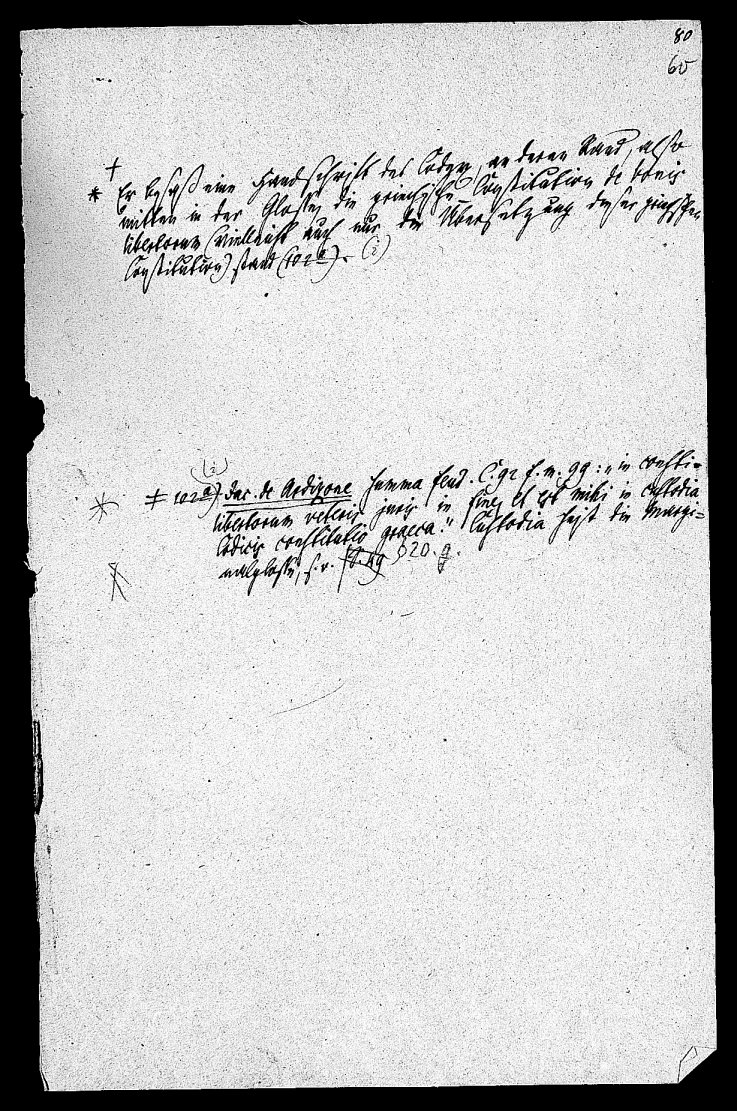 80
60
+
* Er besaß eine Handschrift des Codex, an deren Rand, also
mitten in der Glosse, die griechische Constitution de bonis
libertorum (vielleicht auch nur die Übersetzung dieser griechischen
Constitution) stand (102 a). (i)
(i)
* ‡ 102 a) Jac. de Ardizone Summa feud. C. 92 f. m. 99: „in
libertorum veteris juris in fine, et est mihi in custodia
Codicis constitutio graeca." Custodia heißt die Margi=
nalglosse, s. v. 520. g.